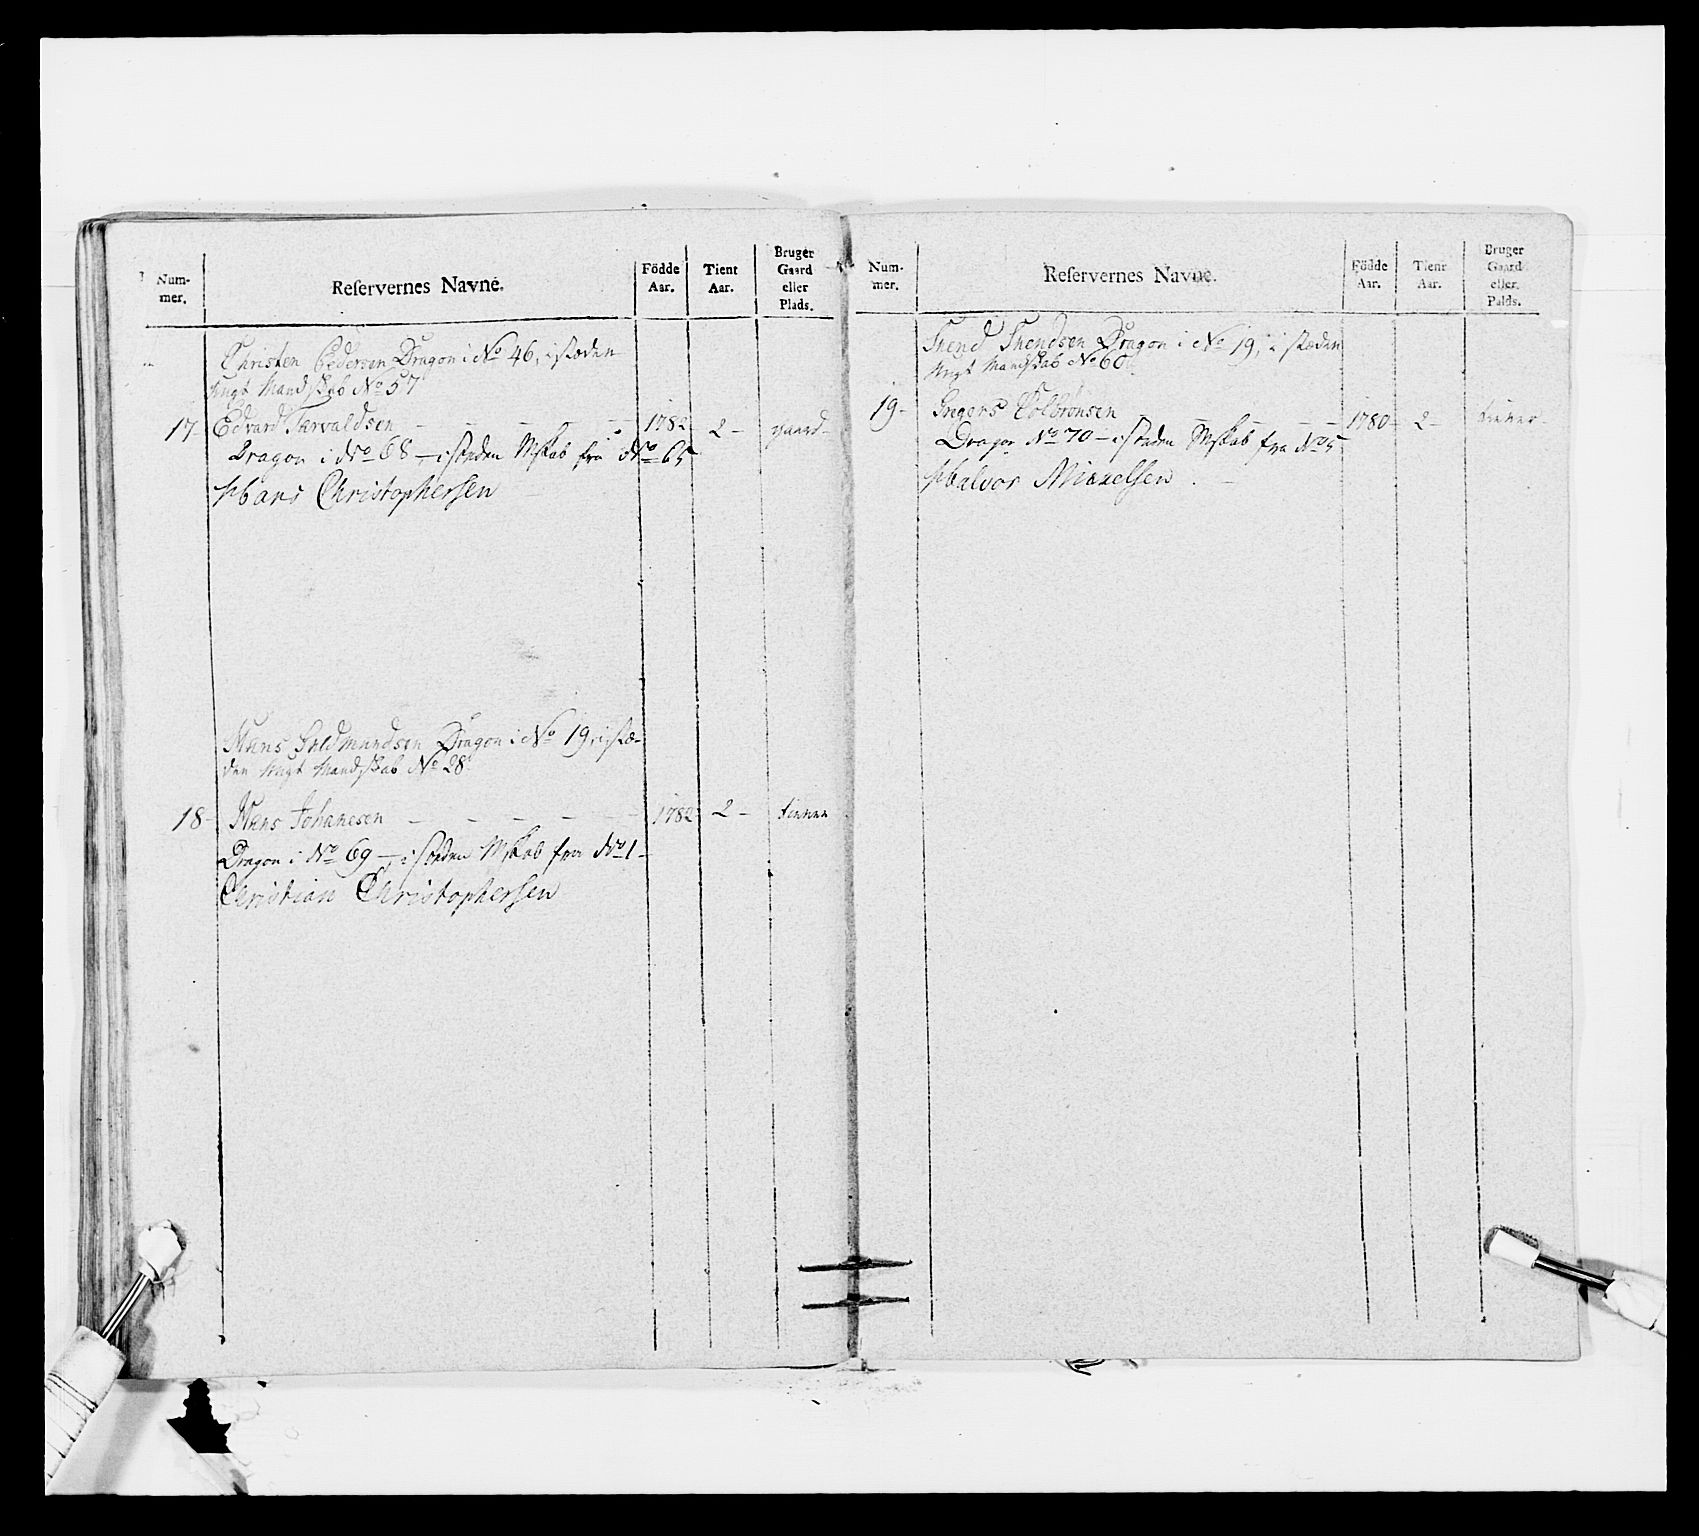 Num-
mer.
Reservernes Navne.
Födde
Aar.
Tient
Aar.
Bruger
Gaard
eller
Plads.
Christen Pedersen Dragon i No 46, i stæden
Ungt Mandskab No 57
17- Edvard Tarvaldsen - - - - - 1782 2- gaard-
Dragon i No 68 - i steden Mskab fra No 65
Hans Christophersen
Hans Guldmundsen Dragon i No 19, i stæ-
den Ungt Mandskab No 28
18- Hans Johanesen - - - - - 1782 2- tiener
Dragon i No 69 - i steden Mskab fra No 1-
Christian Christophersen
Num-
mer.
Reservernes Navne.
Födde
Aar.
Tient
Aar.
Bruger
Gaard
eller.
Palds.
Svend Svendsen Dragon i No 19, i stæden
Ungt Mandskab No 60
19- Gregers Colbrönsen - - - - 1780- 2- tiener-
Dragon No 70 - i steden Mskab fra No 5
Halvor Mikkelsen